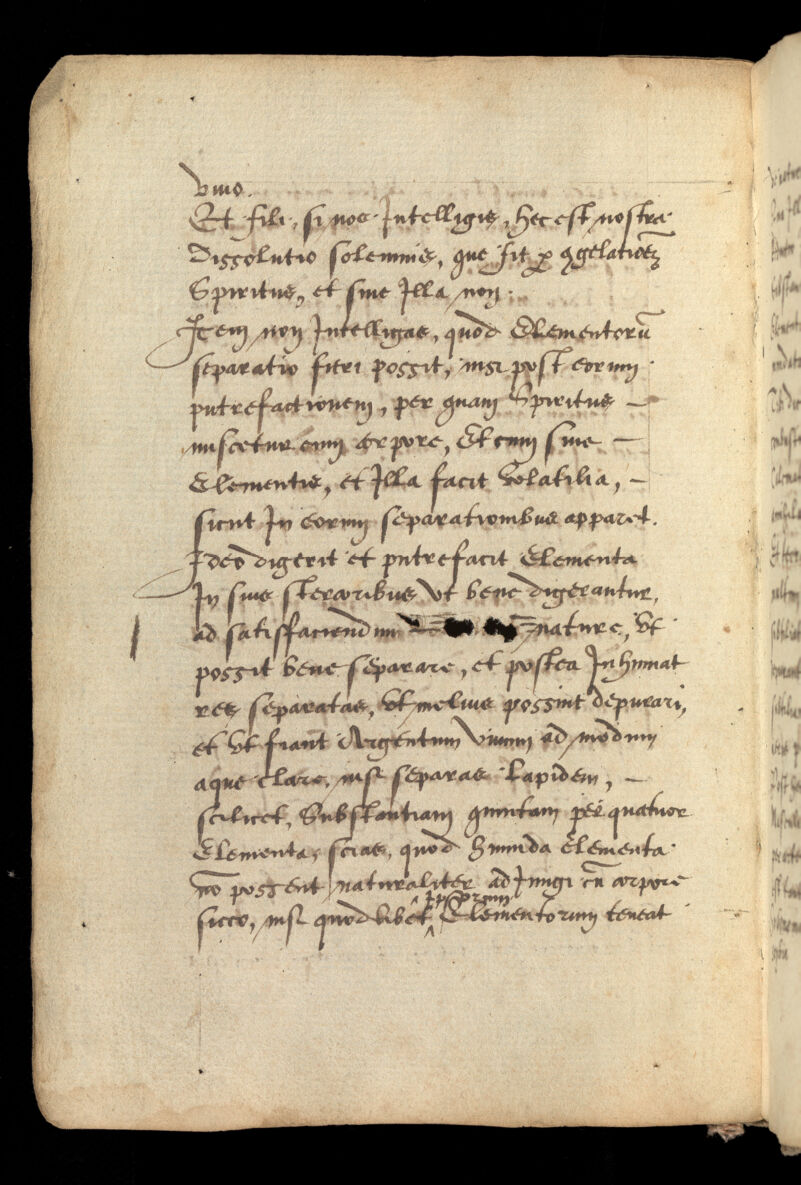 viuo.
Et fili, si hoc Intelligis, hec est nostra
Dissolutio solemnis, que fit ꝑ ꝯgelationēꝫ
Spiritus, et sine Illa non.
Item non Intelligas, quod Elementorū
separatio fieri possit, nisi post eorum
putrefactionem, per quam Spiritus —
miscetur cum corpore, Et cum suis —
Elementis, et Illa facit Volatilia, —
sicut In eorum separationibus apparet.
Ideo digerit et putrefacit Elementa
In suis stercoribus Vt bene digerantur,
ad satisfaciendum nature, Vt
possit bene separare, et postea Inhumat
res separatas, Vt melius possint depurari,
et Vt fiant Argentum Viuum ad modum
aque clare, nisi separas Lapidem, —
scilicet, Substantiam quintam per quatuor
Elementa, scias, quod humida elementa
nō possent naturaliter adIungi cū corpore
sicco, nisi quodlibet Elementorum teneat